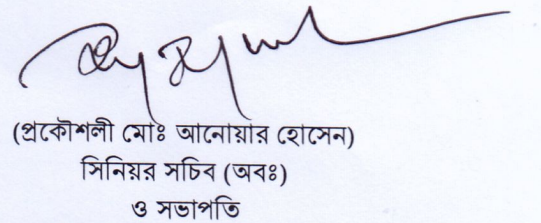 (প্রকৌশলী মোঃ আনোয়ার হোসেন)
সিনিয়র সচিব (অবঃ)
ও সভাপতি